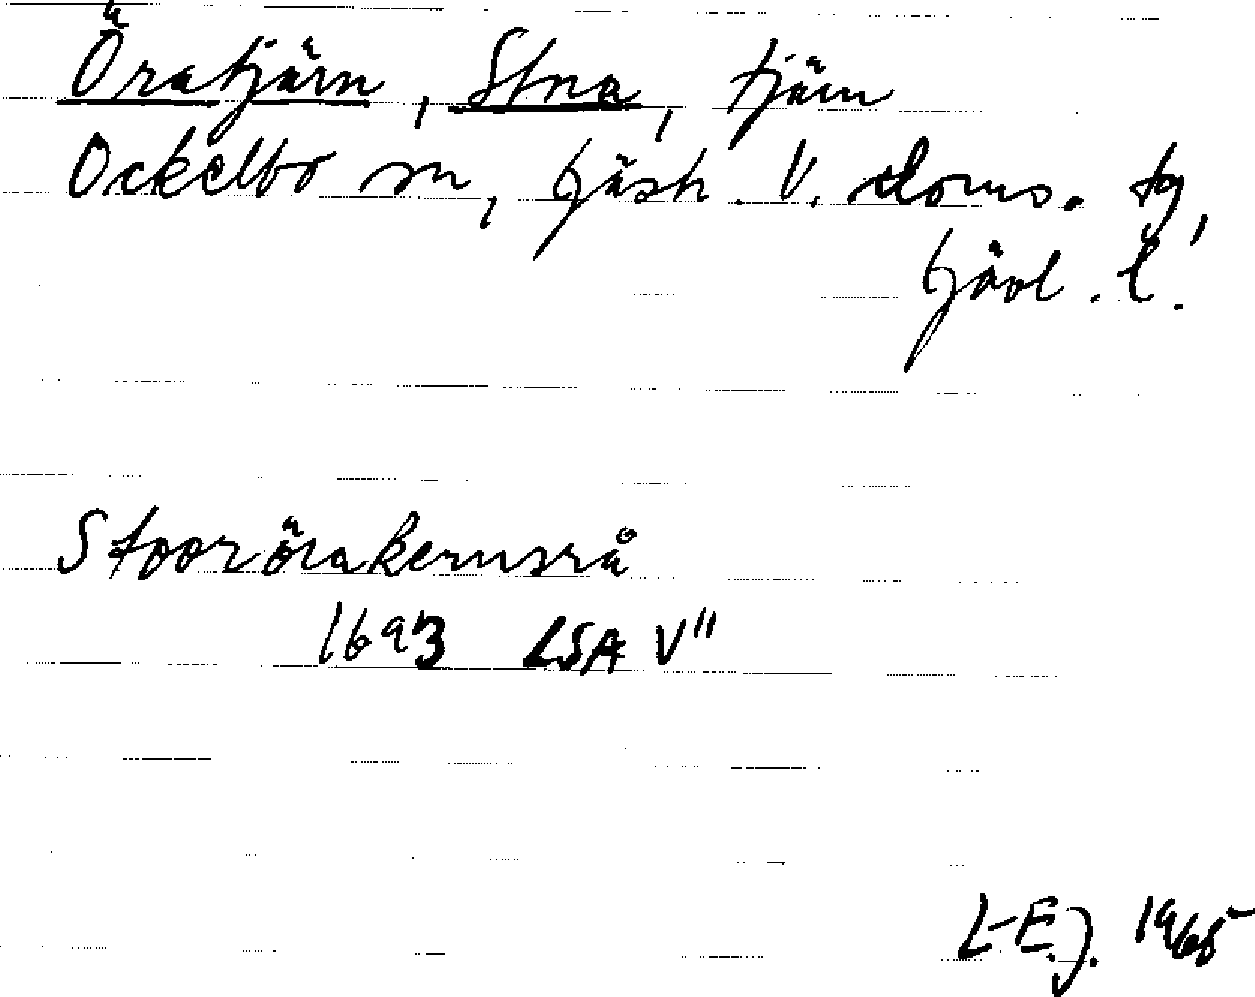 Öratjärn, Stna, tjärn
Ockelbo sn, Gästr. V. doms. tg,
Gävl. l.
Stoorörakernsrå
1693 LSA V"
L-E.J. 1965